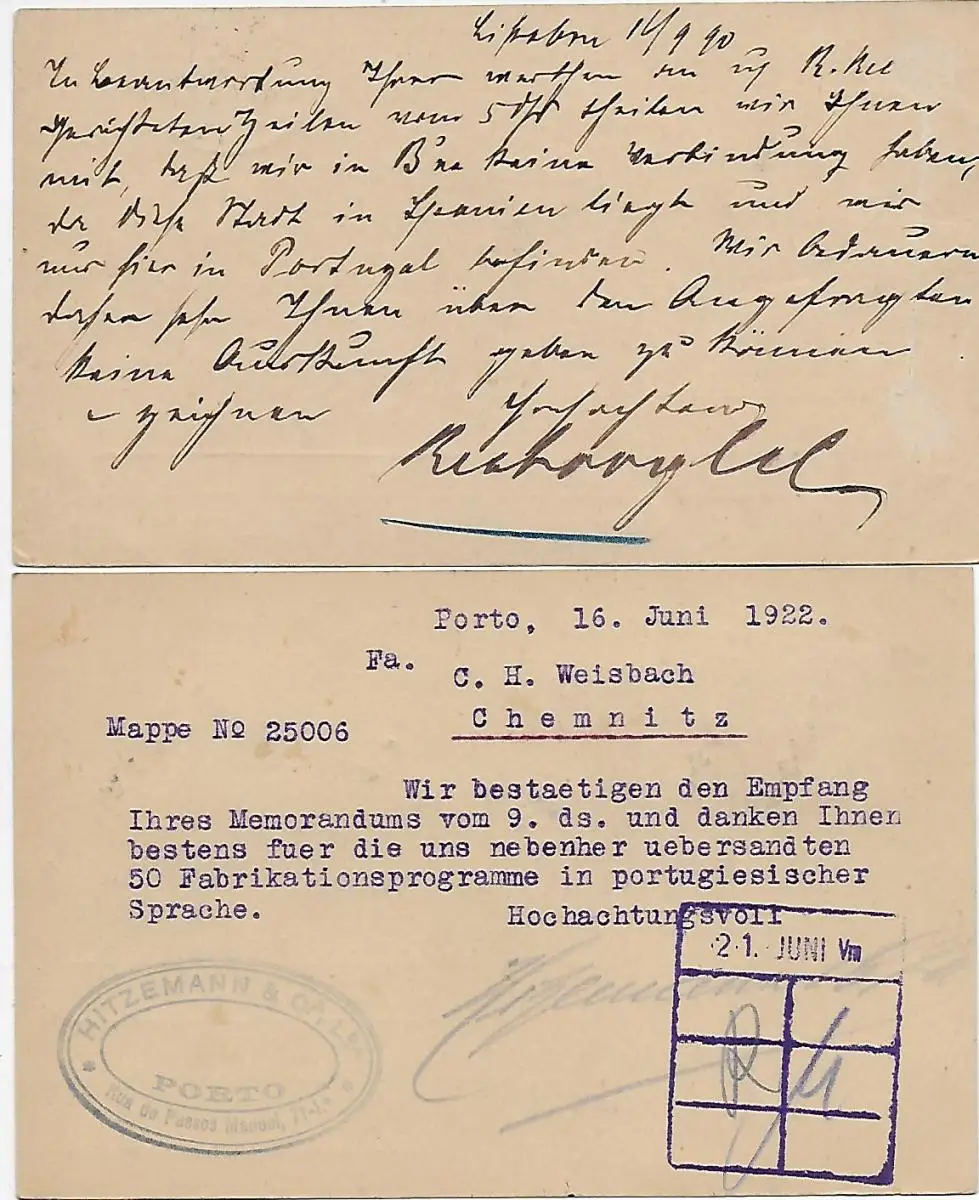 Lissabon 14/9 90
In Beantwortung Ihrer werthen an R.
gerichteten Zeilen vom 5 ds theilen wir Ihnen
mit, daß wir in keine Verbindung haben,
da diese Stadt in Spanien liegt und wir
nur hier in Portugal befinden. Wir bedauern
daher sehr Ihnen über den Angefragten
keine Auskunft geben zu können
& zeichnen Hochachtend
Porto, 16. Juni 1922.
Fa. C. H. Weisbach
Chemnitz
Mappe No 25006
Wir bestaetigen den Empfang
Ihres Memorandums vom 9. ds. und danken Ihnen
bestens fuer die uns nebenher uebersandten
50 Fabrikationsprogramme in portugiesischer
Sprache. Hochachtungsvoll
21. JUNI Vm
HITZEMANN & Co, Lda
PORTO
Rua de Passos Manoel,